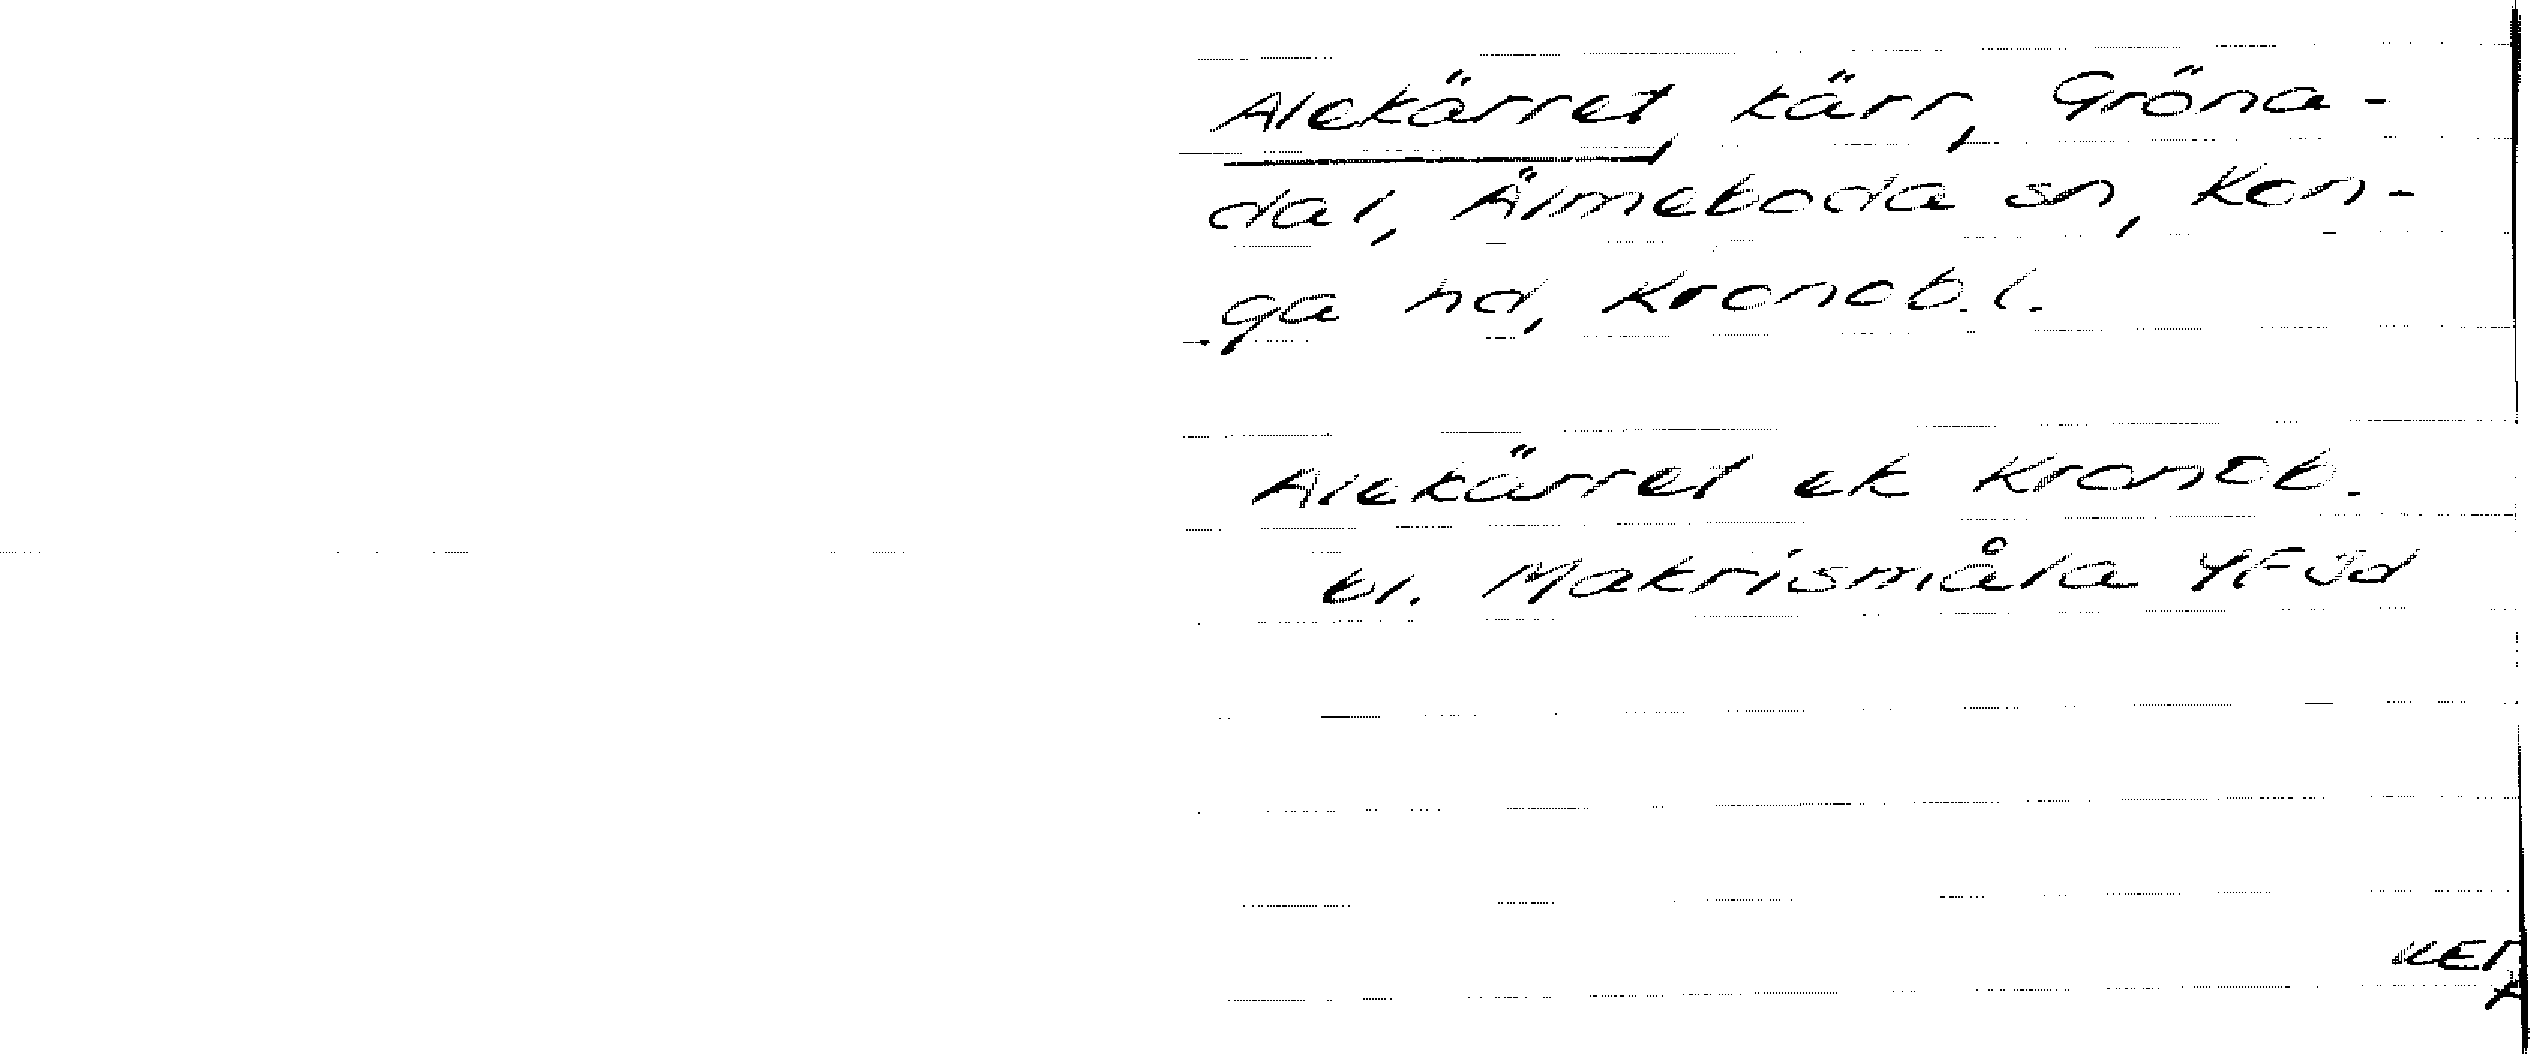 Alekärret, kärr, Gröna-
dal, Älmeboda sn, Kon-
ga hd, Kronob. l.
Alekärret ek Kronob.
bl. Makrismåla 4F3d